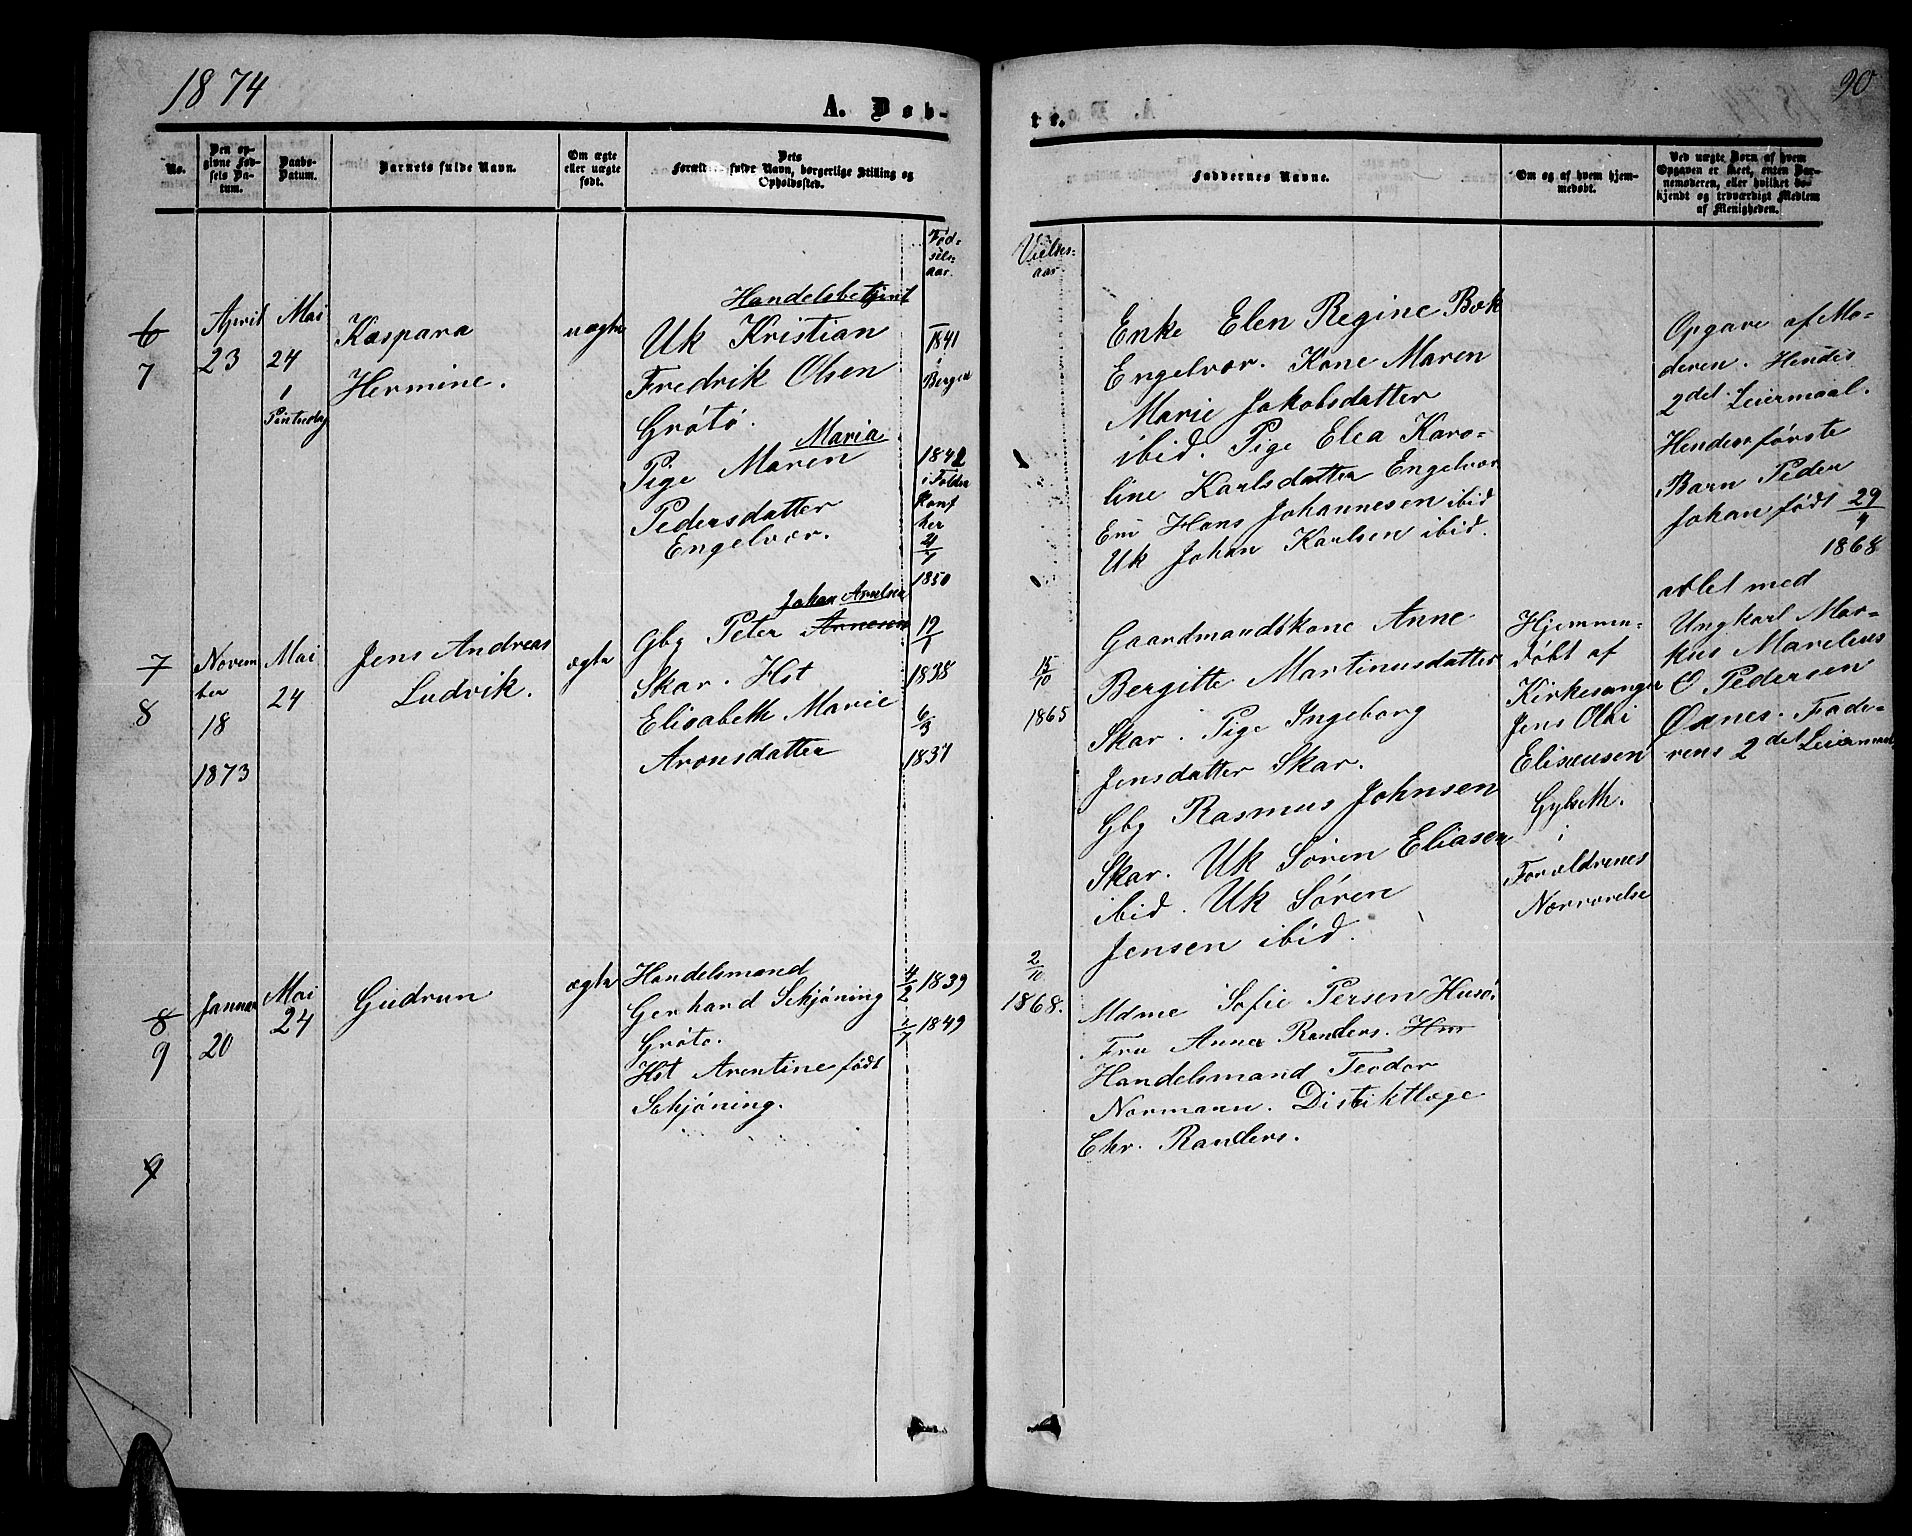 1874
90
A. Døb-
te.
No.
Den op-
givne Fød-
sels Da-
tum.
Daabs-
Datum.
Barnets fulde Navn.
Om ægte
eller uægte
født.
Dets
fulde Navn, borgerlige Stilling og
Opholdssted.
Faddernes Navne.
Om og af hvem hjem-
medøbt.
Ved uægte Børn af hvem
Opgaven er skeet, enten Bar-
nemoderen, eller hvilket be-
kjendt og troværdigt Medlem
af Menigheden.
Fød-
sels-
aar.
Vielses-
aar.
6
7
April
23
Mai
24
1
Pintsedag
Kaspara
Hermine.
uægte
Handelsbetjent
Uk Kristian
Fredrik Olsen
Grøtø.
Maria
Pige Maren
Pedersdatter
Engelvær.
1841
i
Bergen
1842
i Folden
Konf
her
1850
Enke Elen Regine Bæk
Engelvær. Kone Maren
Marie Jakobsdatter
ibid. Pige Elea Karo-
line Karlsdatter Engelvær
Em Hans Johannesen ibid
Uk Johan Karlsen ibid.
Opgave af Mo-
deren. Hendes
2det Leiermaal.
Hendes første
Barn Peder
Johan født 29/4
1868
avlet med
Ungkarl Mar-
kus Marelius
O Pedersen
Oxnes. Fade-
rens 2det Leiermaal
7
8
Novem
ber
18
1873
Mai
24
Jens Andreas
Ludvik.
ægte
Johan Arntsen
Gbg Peter Arnesen
Skar. Hst
Elisabeth Marie
Aronsdatter
19/1
1838
6/3
1837
15/10
1865
Gaardmandskone Anne
Bergitte Martinusdatter
Skar. Pige Ingeborg
Jensdatter Skar.
Gbg Rasmus Johnsen
Skar. Uk Søren Eliasen
ibid. Uk Søren
Jensen ibid.
Hjemme-
døbt af
Kirkesanger
Jens Olai
Eliseusen
Gylseth.
i
Forældrenes
Nærværelse
8
9
Januar
20
Mai
24
Gudrun
ægte
Handelsmand
Gerhard Schjøning
Grøtø.
Hst Arentine født
Schjøning.
4/2 1839
1/7 1849
2/10
1868.
Mdme Sofie Persen Husø.
Fru Anna Randers. Hm
Handelsmand Teodor
Normann. Distriktlæge
Chr. Randers.
9